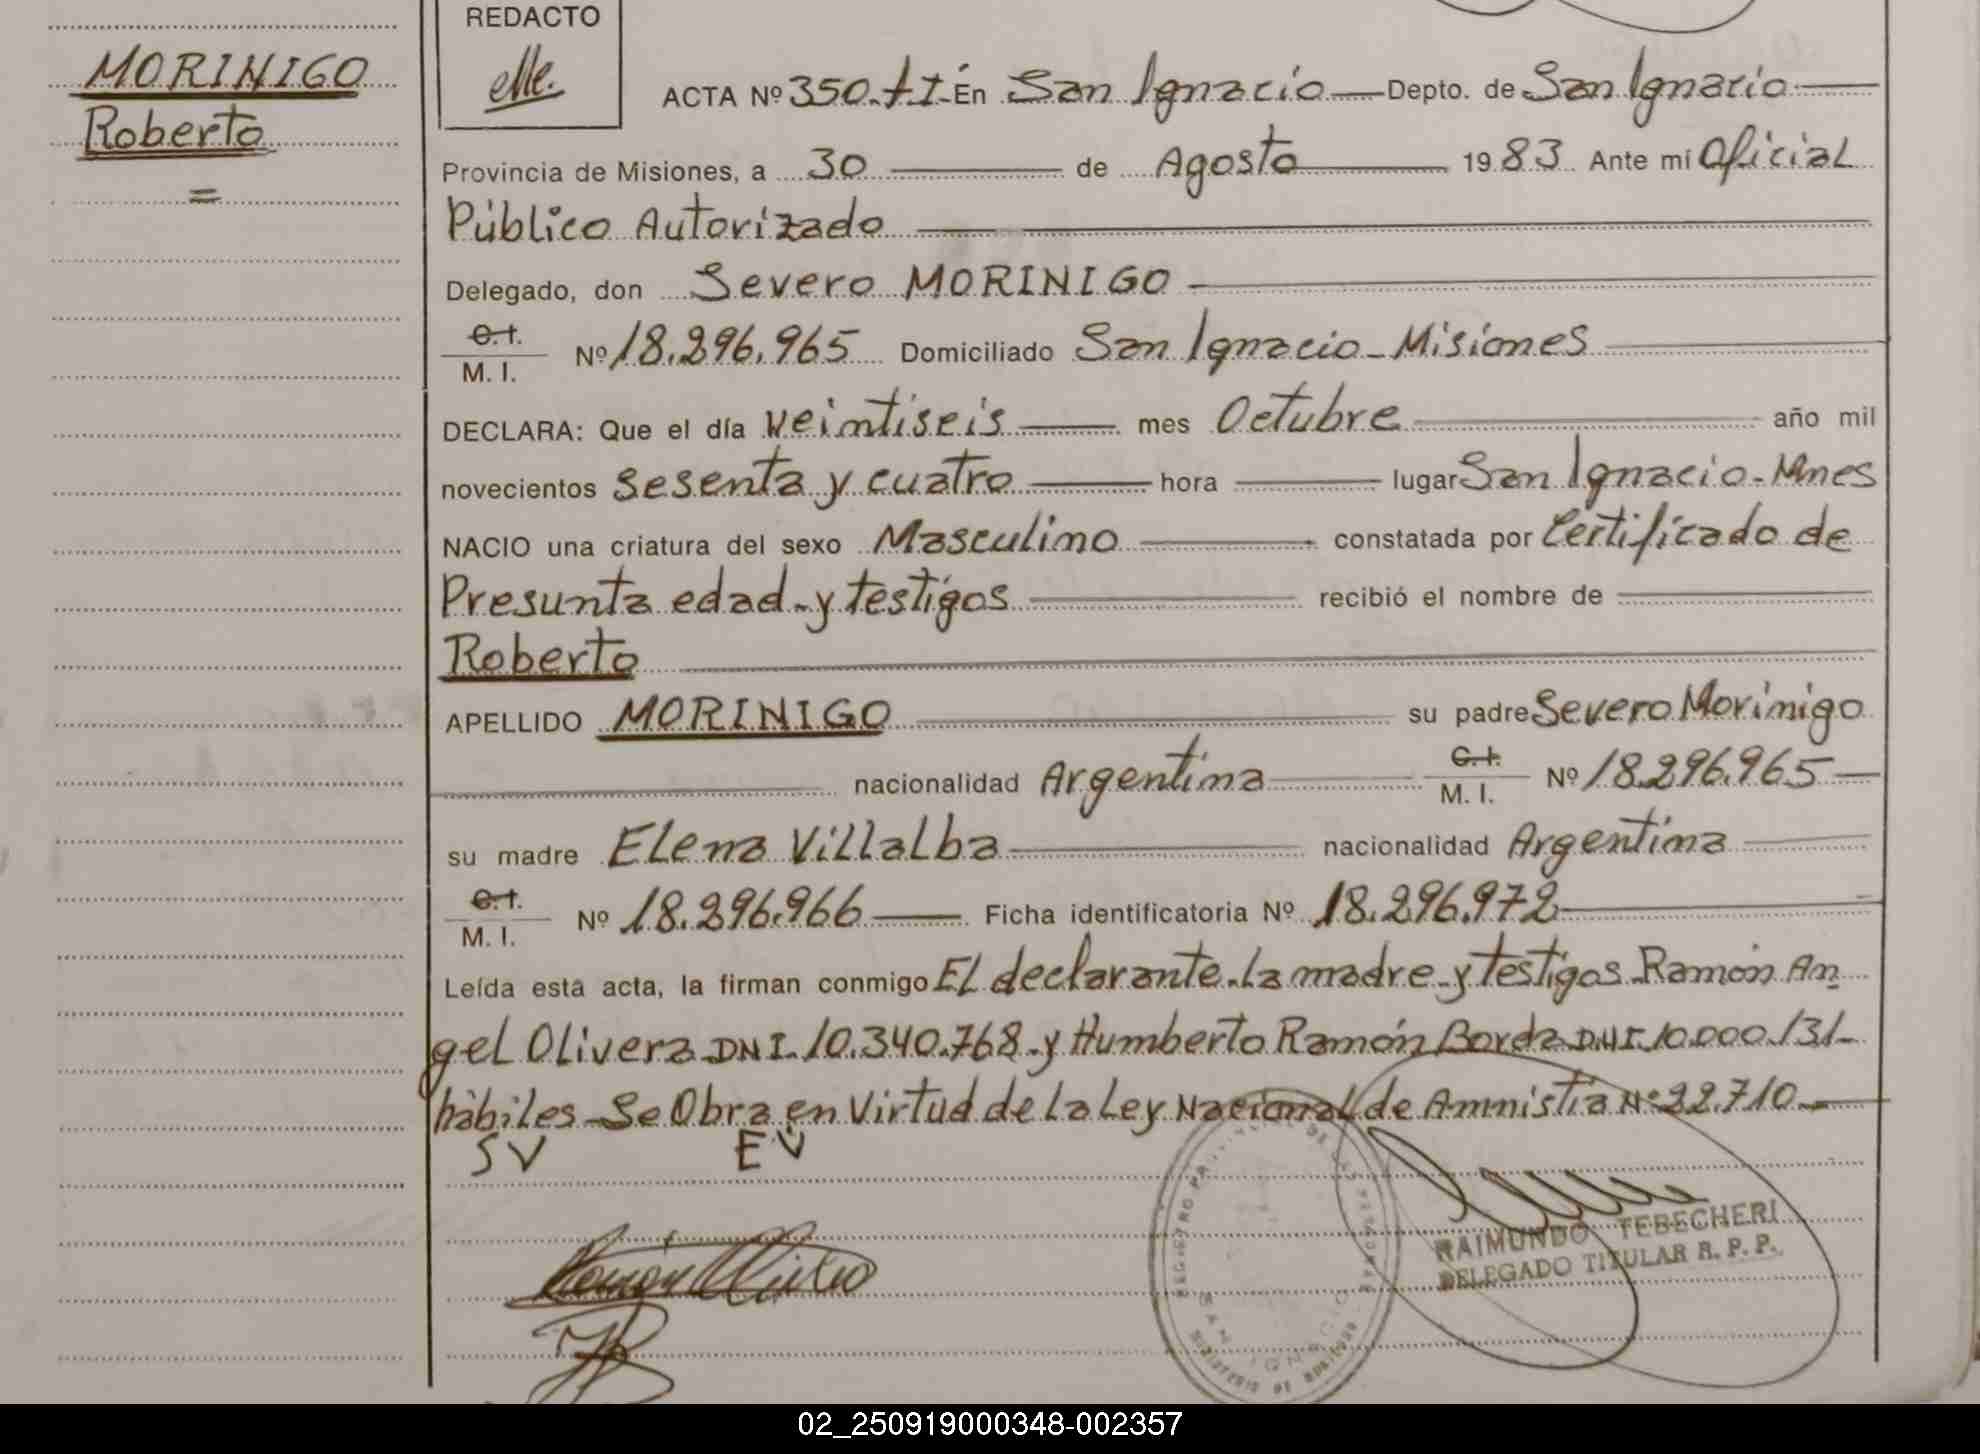 MORINIGO
Roberto
=
REDACTO
ACTA Nº 350.tI. En San Ignacio Depto. de San Ignacio
Provincia de Misiones, a 30 de Agosto 1983 Ante mí Oficial
Público Autorizado
Delegado, don Severo MORINIGO
C.I. / M. I. Nº 18.296.965 Domiciliado San Ignacio - Misiones
DECLARA: Que el día Veintiseis mes Octubre año mil
novecientos sesenta y cuatro hora lugar San Ignacio - Mnes
NACIO una criatura del sexo Masculino constatada por Certificado de
Presunta edad - y testigos recibió el nombre de
Roberto
APELLIDO MORINIGO su padre Severo Morinigo
nacionalidad Argentina C.I. / M. I. Nº 18.296.965
su madre Elena Villalba nacionalidad Argentina
C.I. / M. I. Nº 18.296.966 Ficha identificatoria Nº 18.296.972
Leída esta acta, la firman conmigo El declarante - la madre - y testigos - Ramón An
gel Olivera DNI. 10.340.768 - y Humberto Ramón Borda DNI. 10.000.131 -
hábiles - Se Obra en Virtud de la Ley Nacional de Amnistía Nº 22.710
SV EV
RAIMUNDO TEBECHERI
DELEGADO TITULAR R. P. P.
SAN IGNACIO
02_250919000348-002357